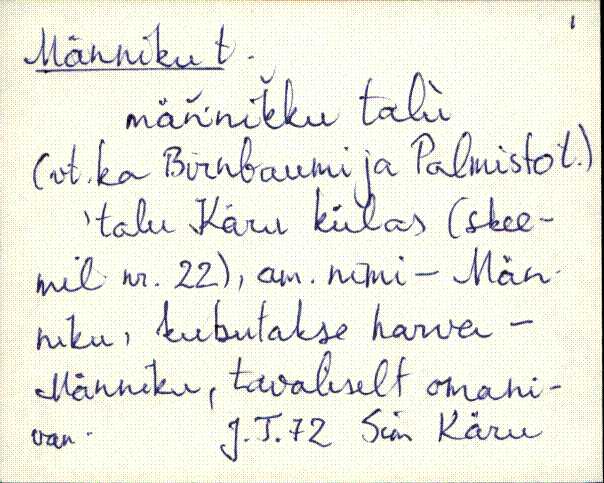 1
Männiku t.
männikku talu
(vt. ka Birnbaumi ja Palmisto t.)
'talu Käru külas (skee-
mil nr. 22), am. nimi - Män-
niku, kubutakse harva -
Männiku, tavaliselt omani-
J.T.72 Sim Käru